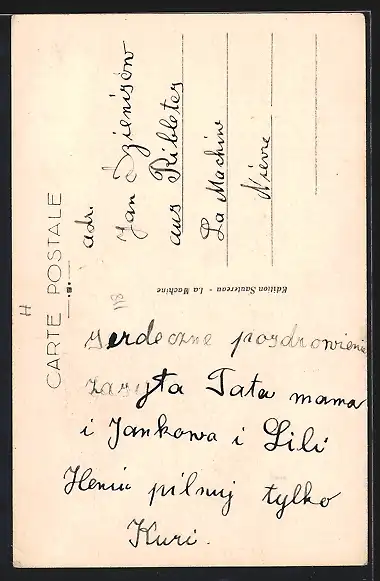 CARTE POSTALE
adr.
Jan Dzienisów
aus Ribletes
La Machine
Nièvre
Edition Sautereau - La Machine
H
Serdeczne pozdrowienie
zasyła Tata mama
i Jankowa i Lili
Heniu pilnuj tylko
Kuri.